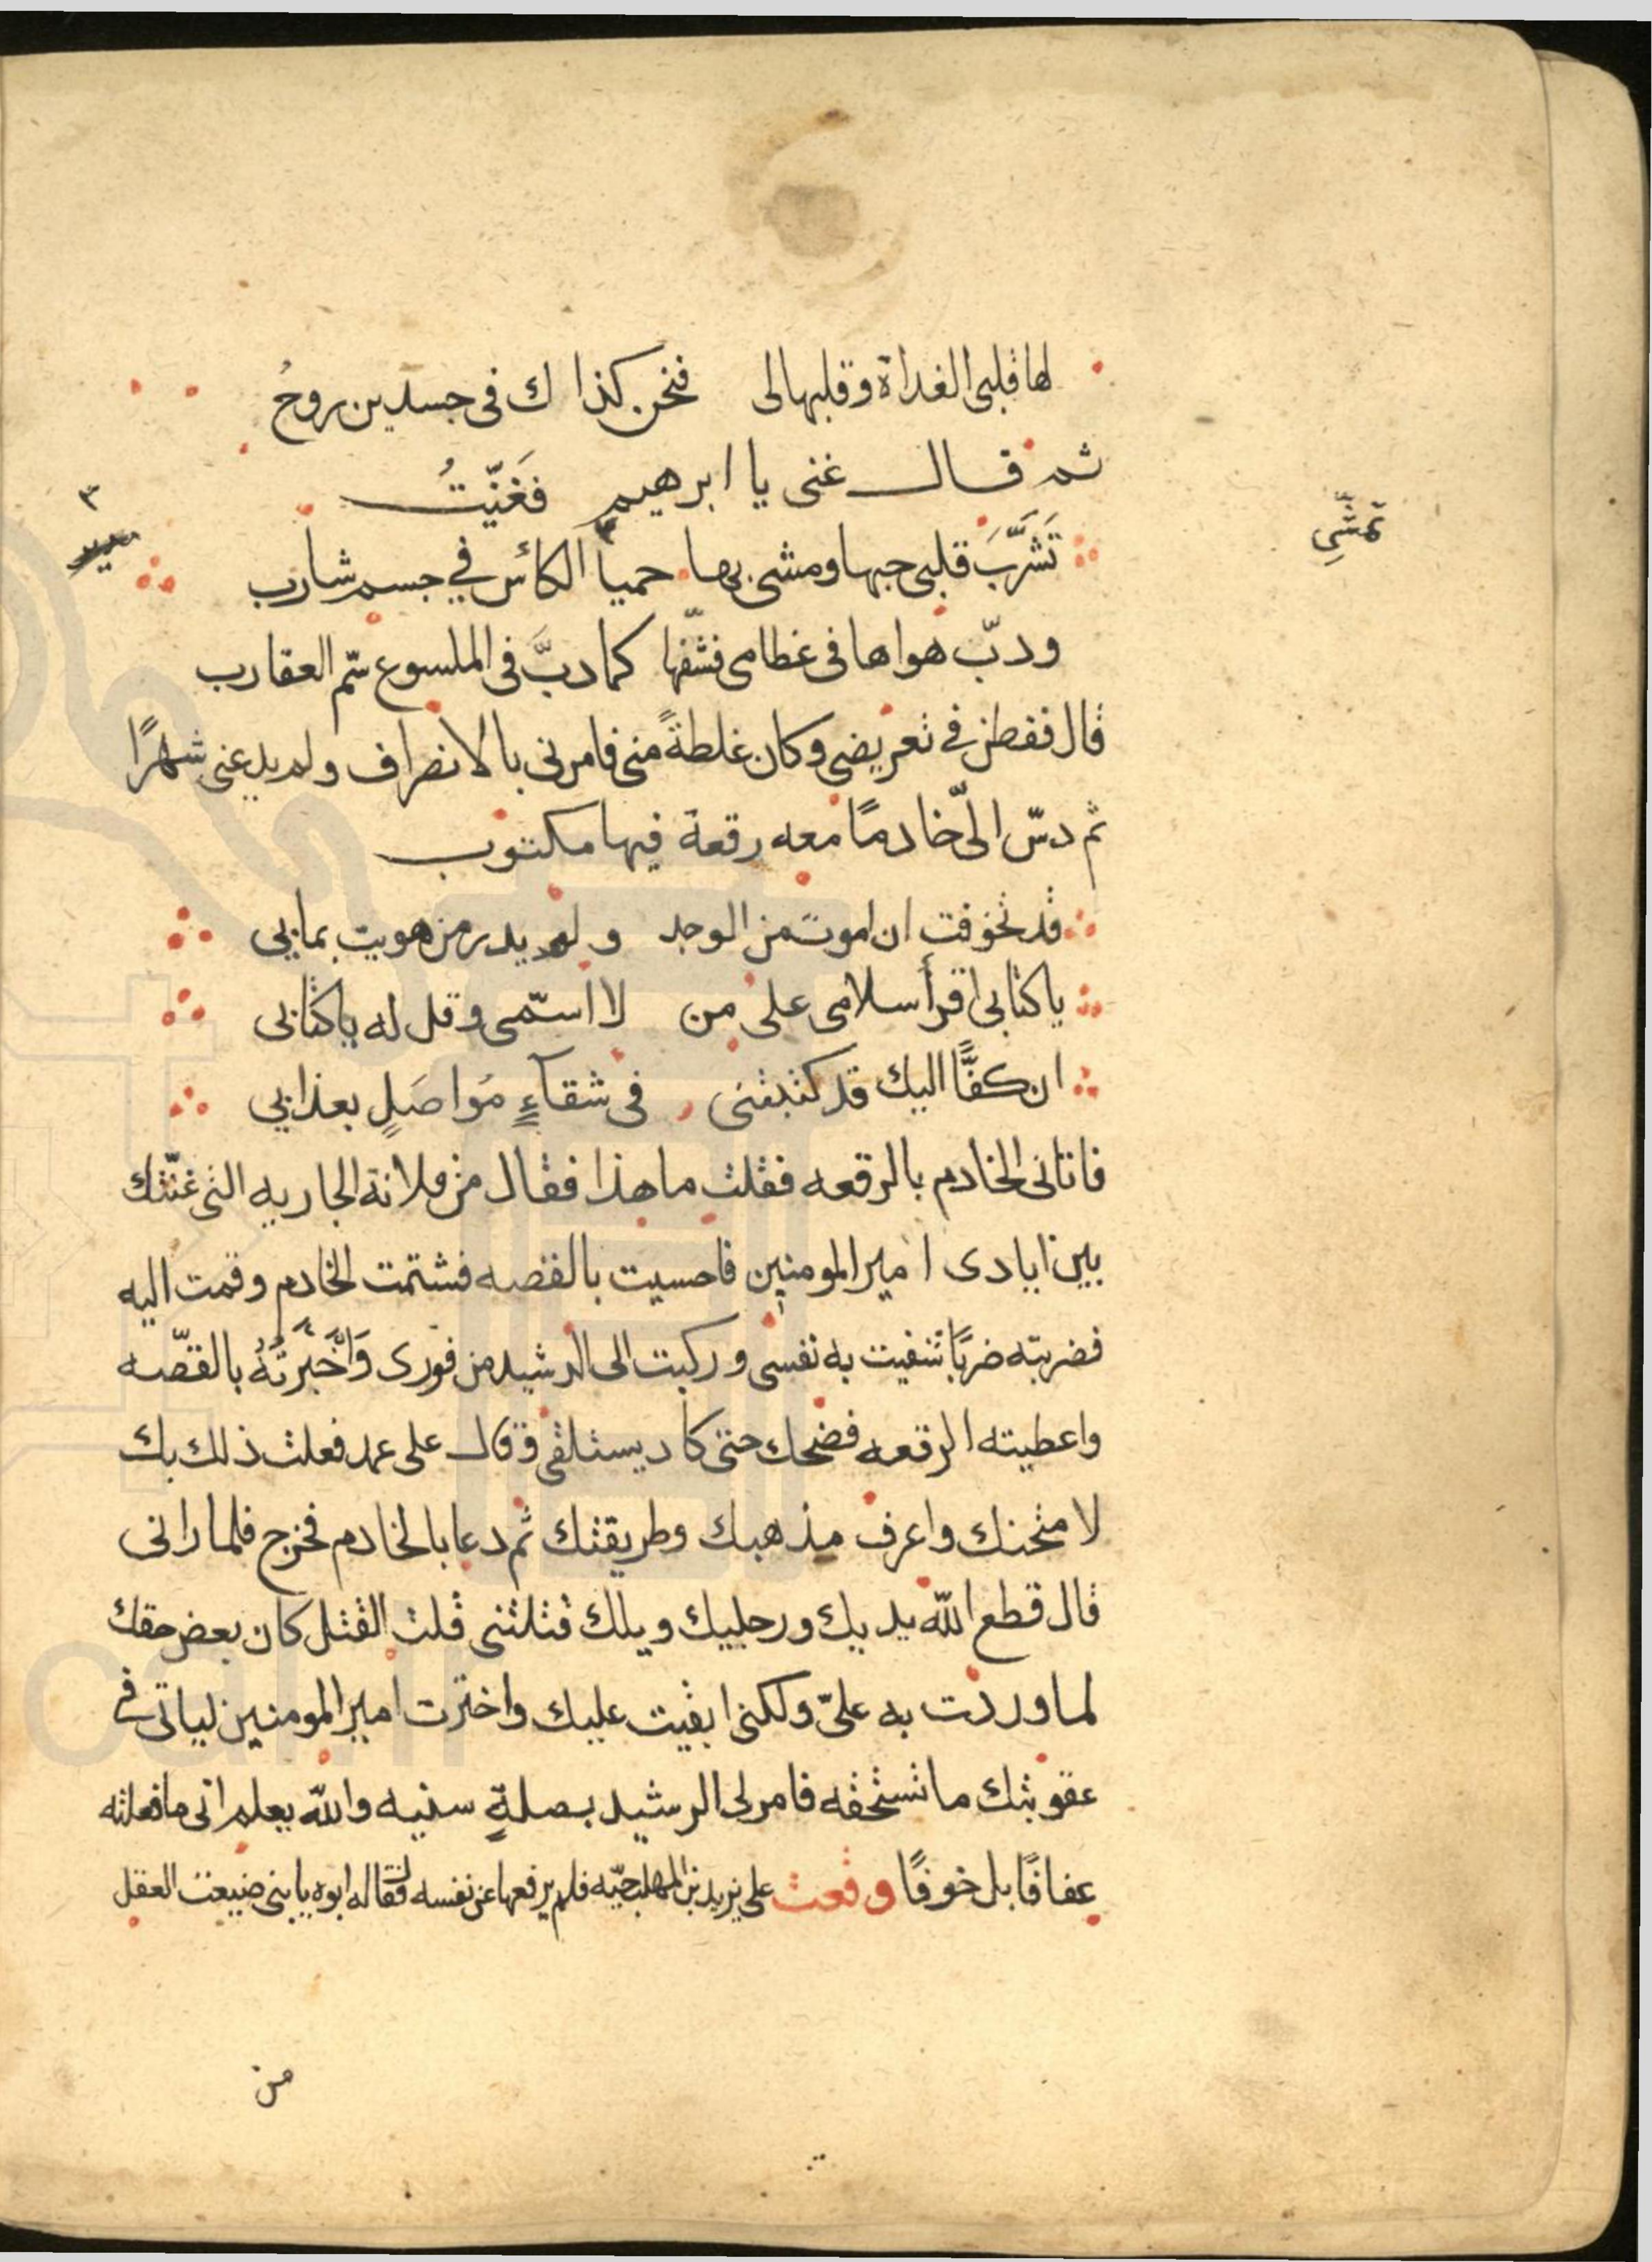 لها قلبي الغداة وقلبها لي فنحن كذا ك في جسدين روحُ
ثم قال غنى يا ابرهيم فَغَنَّيتُ
تمشّي
تَشَرَّبَ قلبي حبها ومشى بها حميا الكأس في جسم شارب
٣
ودبّ هواها في غظامي فشّفها كما دبَّ في الملسوع سّم العقارب
قال ففطن في تعريضي وكان غلطةً منى فامرنى بالانصراف ولم يدعنى شهرًا
ثم دسّ الىّ خادمًا معه رقعة فيها مكتوب
قد تخوفت ان اموت من الوجد ولم يدر من هويت بما بي
يا كتابي اقرأ سلامى على من لا اسّمى وقل له يا كتابي
ان كفًّا اليك قد كتبتنى في شقآءٍ مُواصَلٍ بعذابي
فاتانى الخادم بالرقعه فقلت ما هذا فقال من فلانة الجاريه التى غنّتك
بين ايادى امير المومنين فاحسيت بالقصه فشتمت الخادم وقمت اليه
فضربته ضربًا شفيت به نفسى وركبت الى الرشيد من فورى وَاَخْبَرتُهُ بالقصّه
واعطيته الرقعه فضحك حتى كاد يستلقى وقال على عمد فعلت ذلك بك
لامتحنك واعرف مذهبك وطريقتك ثم دعا بالخادم فخرج فلما رانى
قال قطع الله يديك ورجليك ويلك قتلتنى قلت القتل كان بعض حقك
لما وردت به علىّ ولكنى ابقيت عليك واخترت امير المومنين لياتى في
عقوبتك ما تستحقه فامر لى الرشيد بصلةٍ سنيه والله يعلم انى ما فعلته
عفافًا بل خوفًا وقعت على يزيد بن المهلب حيّه فلم يرفعها عن نفسه فقال له ابوه يا بنى ضيعت العقل
من